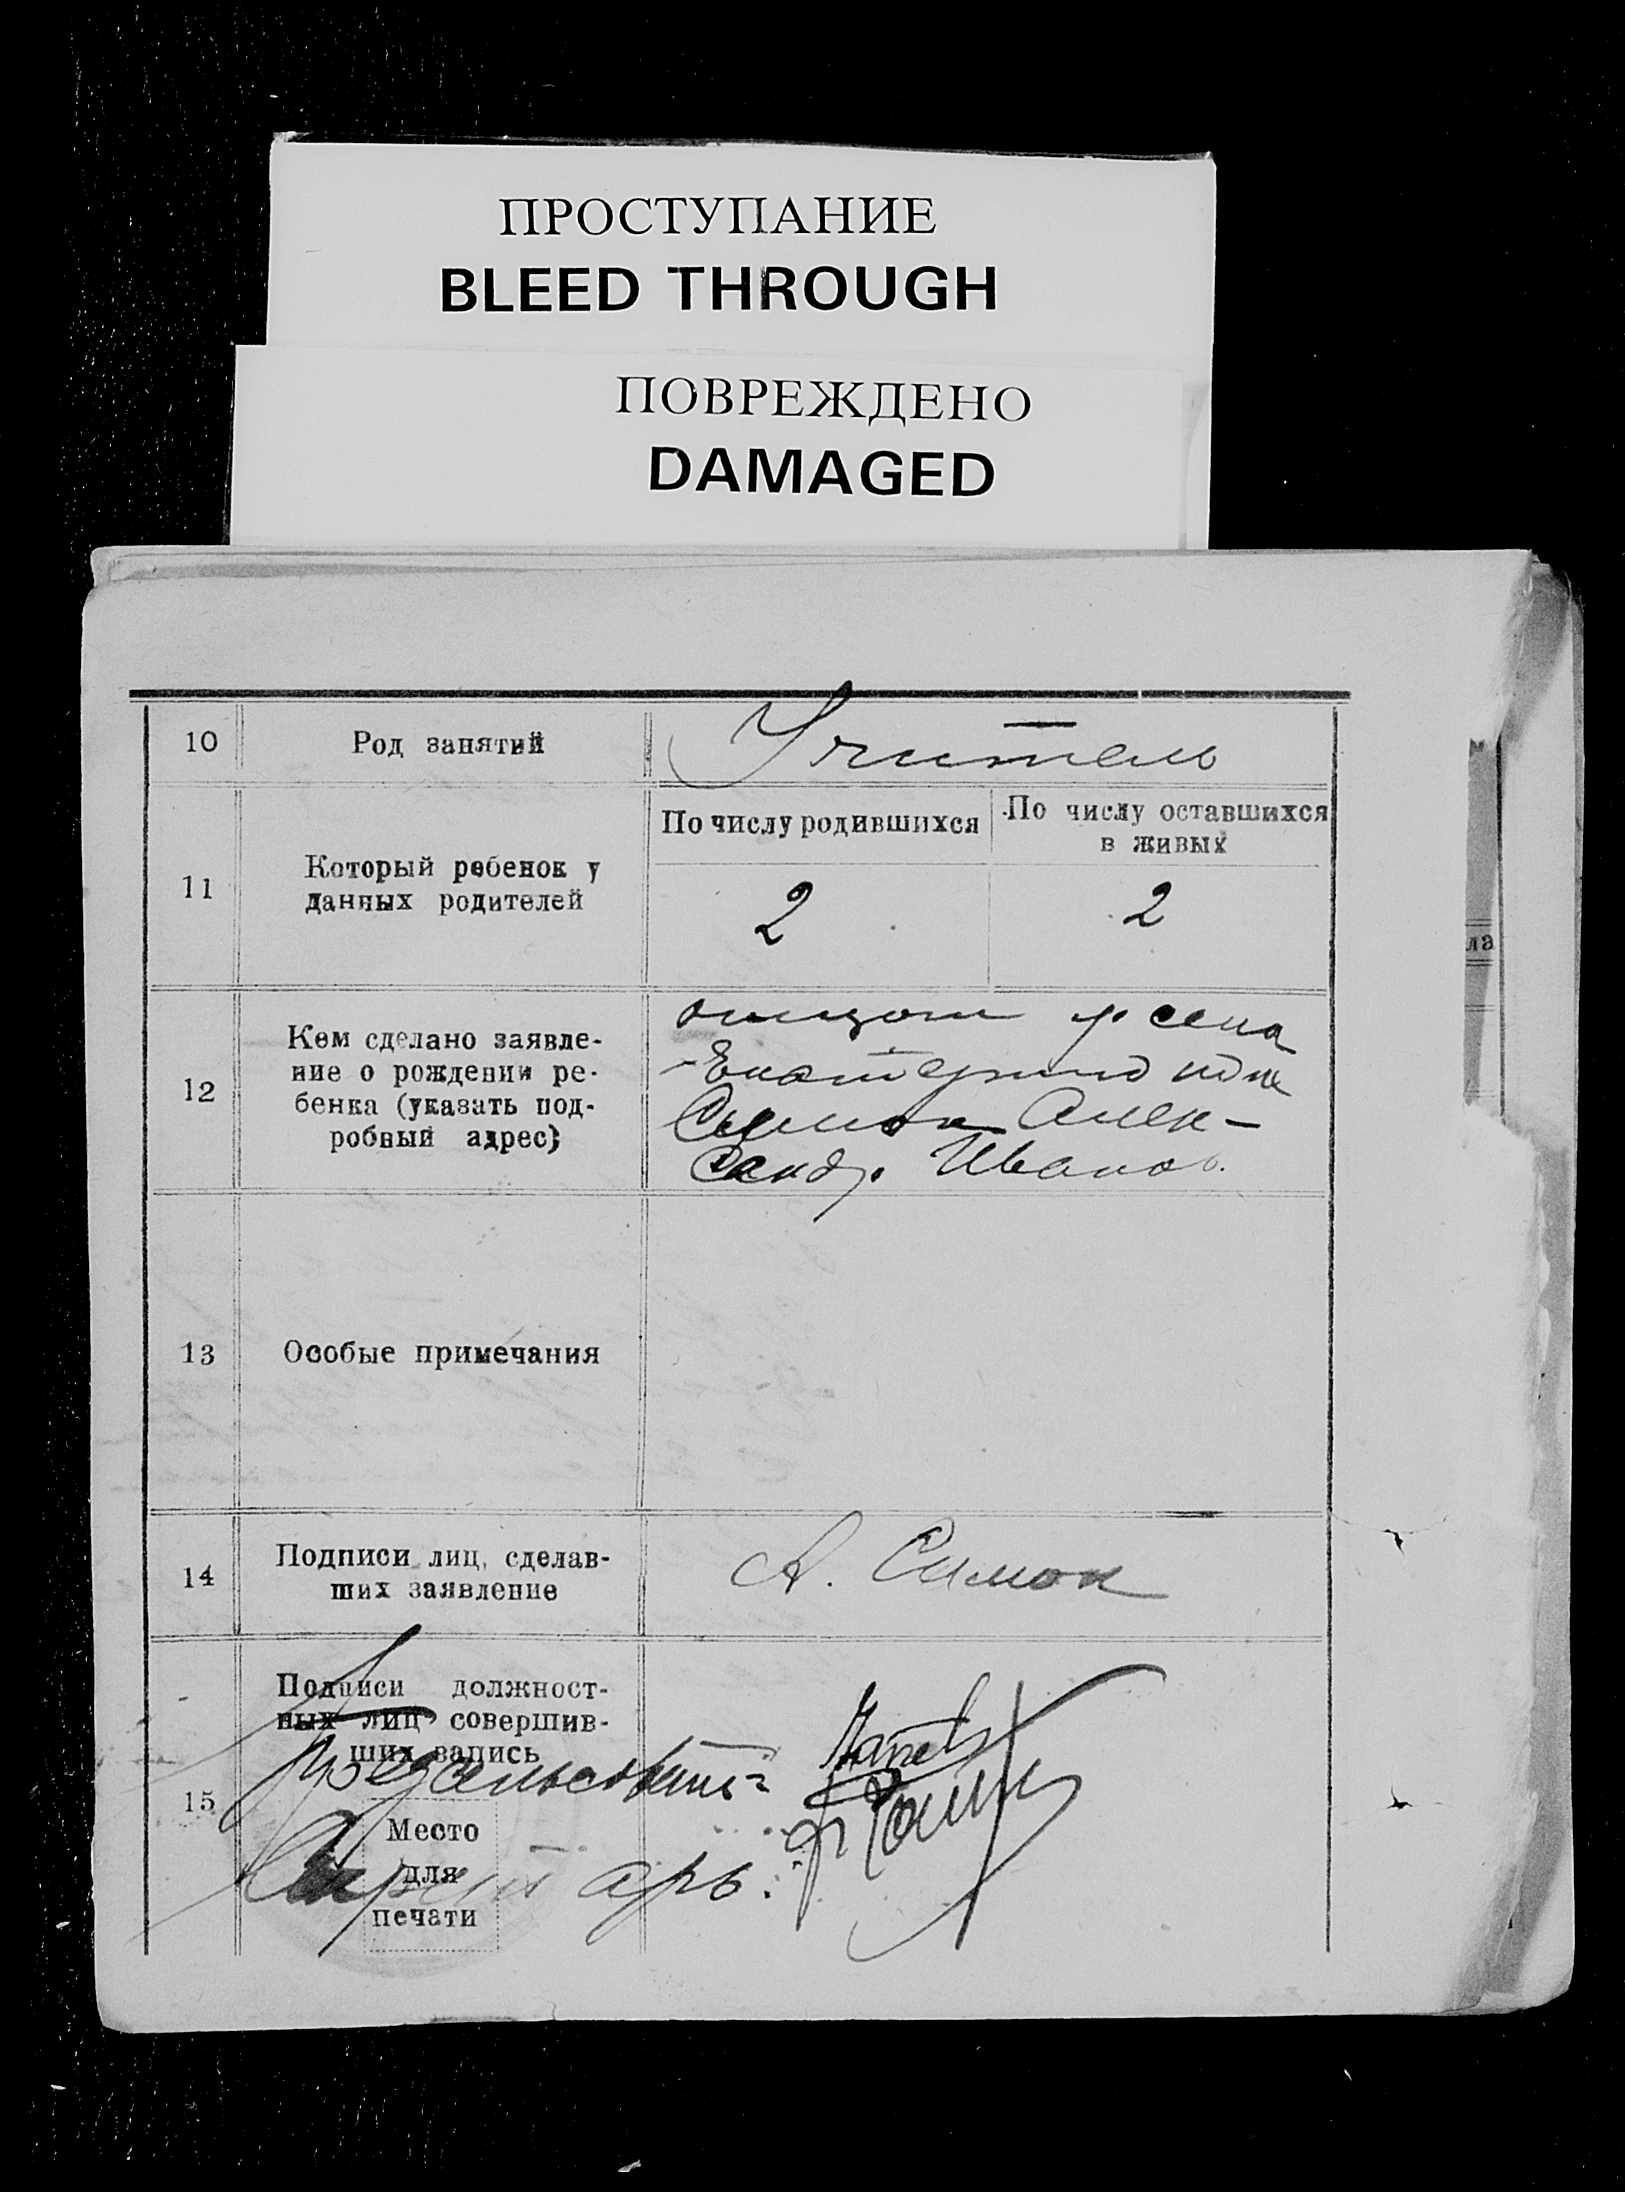 ПРОСТУПАНИЕ
BLEED THROUGH
ПОВРЕЖДЕНО
DAMAGED
10 Род занятий Учитель
11 Который ребенок у
данных родителей
По числу родившихся
По числу оставшихся
в живых
2 2
12 Кем сделано заявле-
ние о рождении ре-
бенка (указать под-
робный адрес)
отцом села
Алек-
сандр Иванов.
13 Особые примечания
14 Подписи лиц, сделав-
ших заявление
А. Сымок
15 Подписи должност-
ных лиц совершив-
ших запись
Секретарь.
Место
для
печати
ла